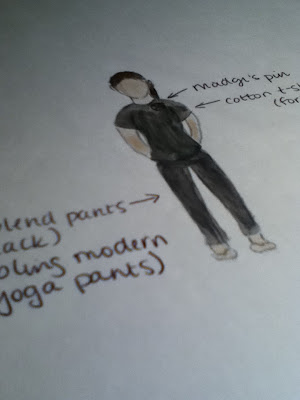 madge's pin
cotton t-s
(for
lend pants
lack)
bling modern
yoga pants)